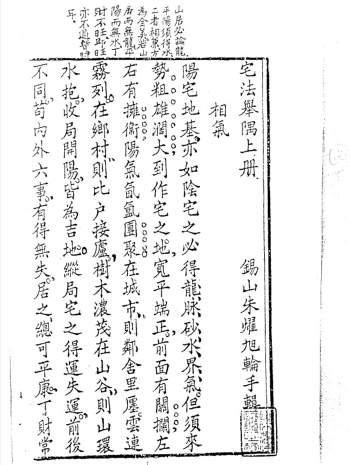 宅法舉隅上册　錫山朱燿旭輪手輯
相氣
陽宅地基亦如陰宅之必得龍脉砂水界氣但須來
勢粗雄濶大到作宅之地寬平端正前面有闌攔左
右有擁衛陽氣氤氳團聚在城市則鄰舍里廛雲連
霧列在鄉村則比户接廬樹木濃茂在山谷則山環
水抱收局開陽皆為吉地縱局宅之得運失運前後
不同苟内外六事有得無失居之總可平康丁財常
山居必論龍
平陽須得水
二者相兼方
為全美若山
居而無龍平
陽而無水丁
財不旺即旺
亦不過暫時
耳